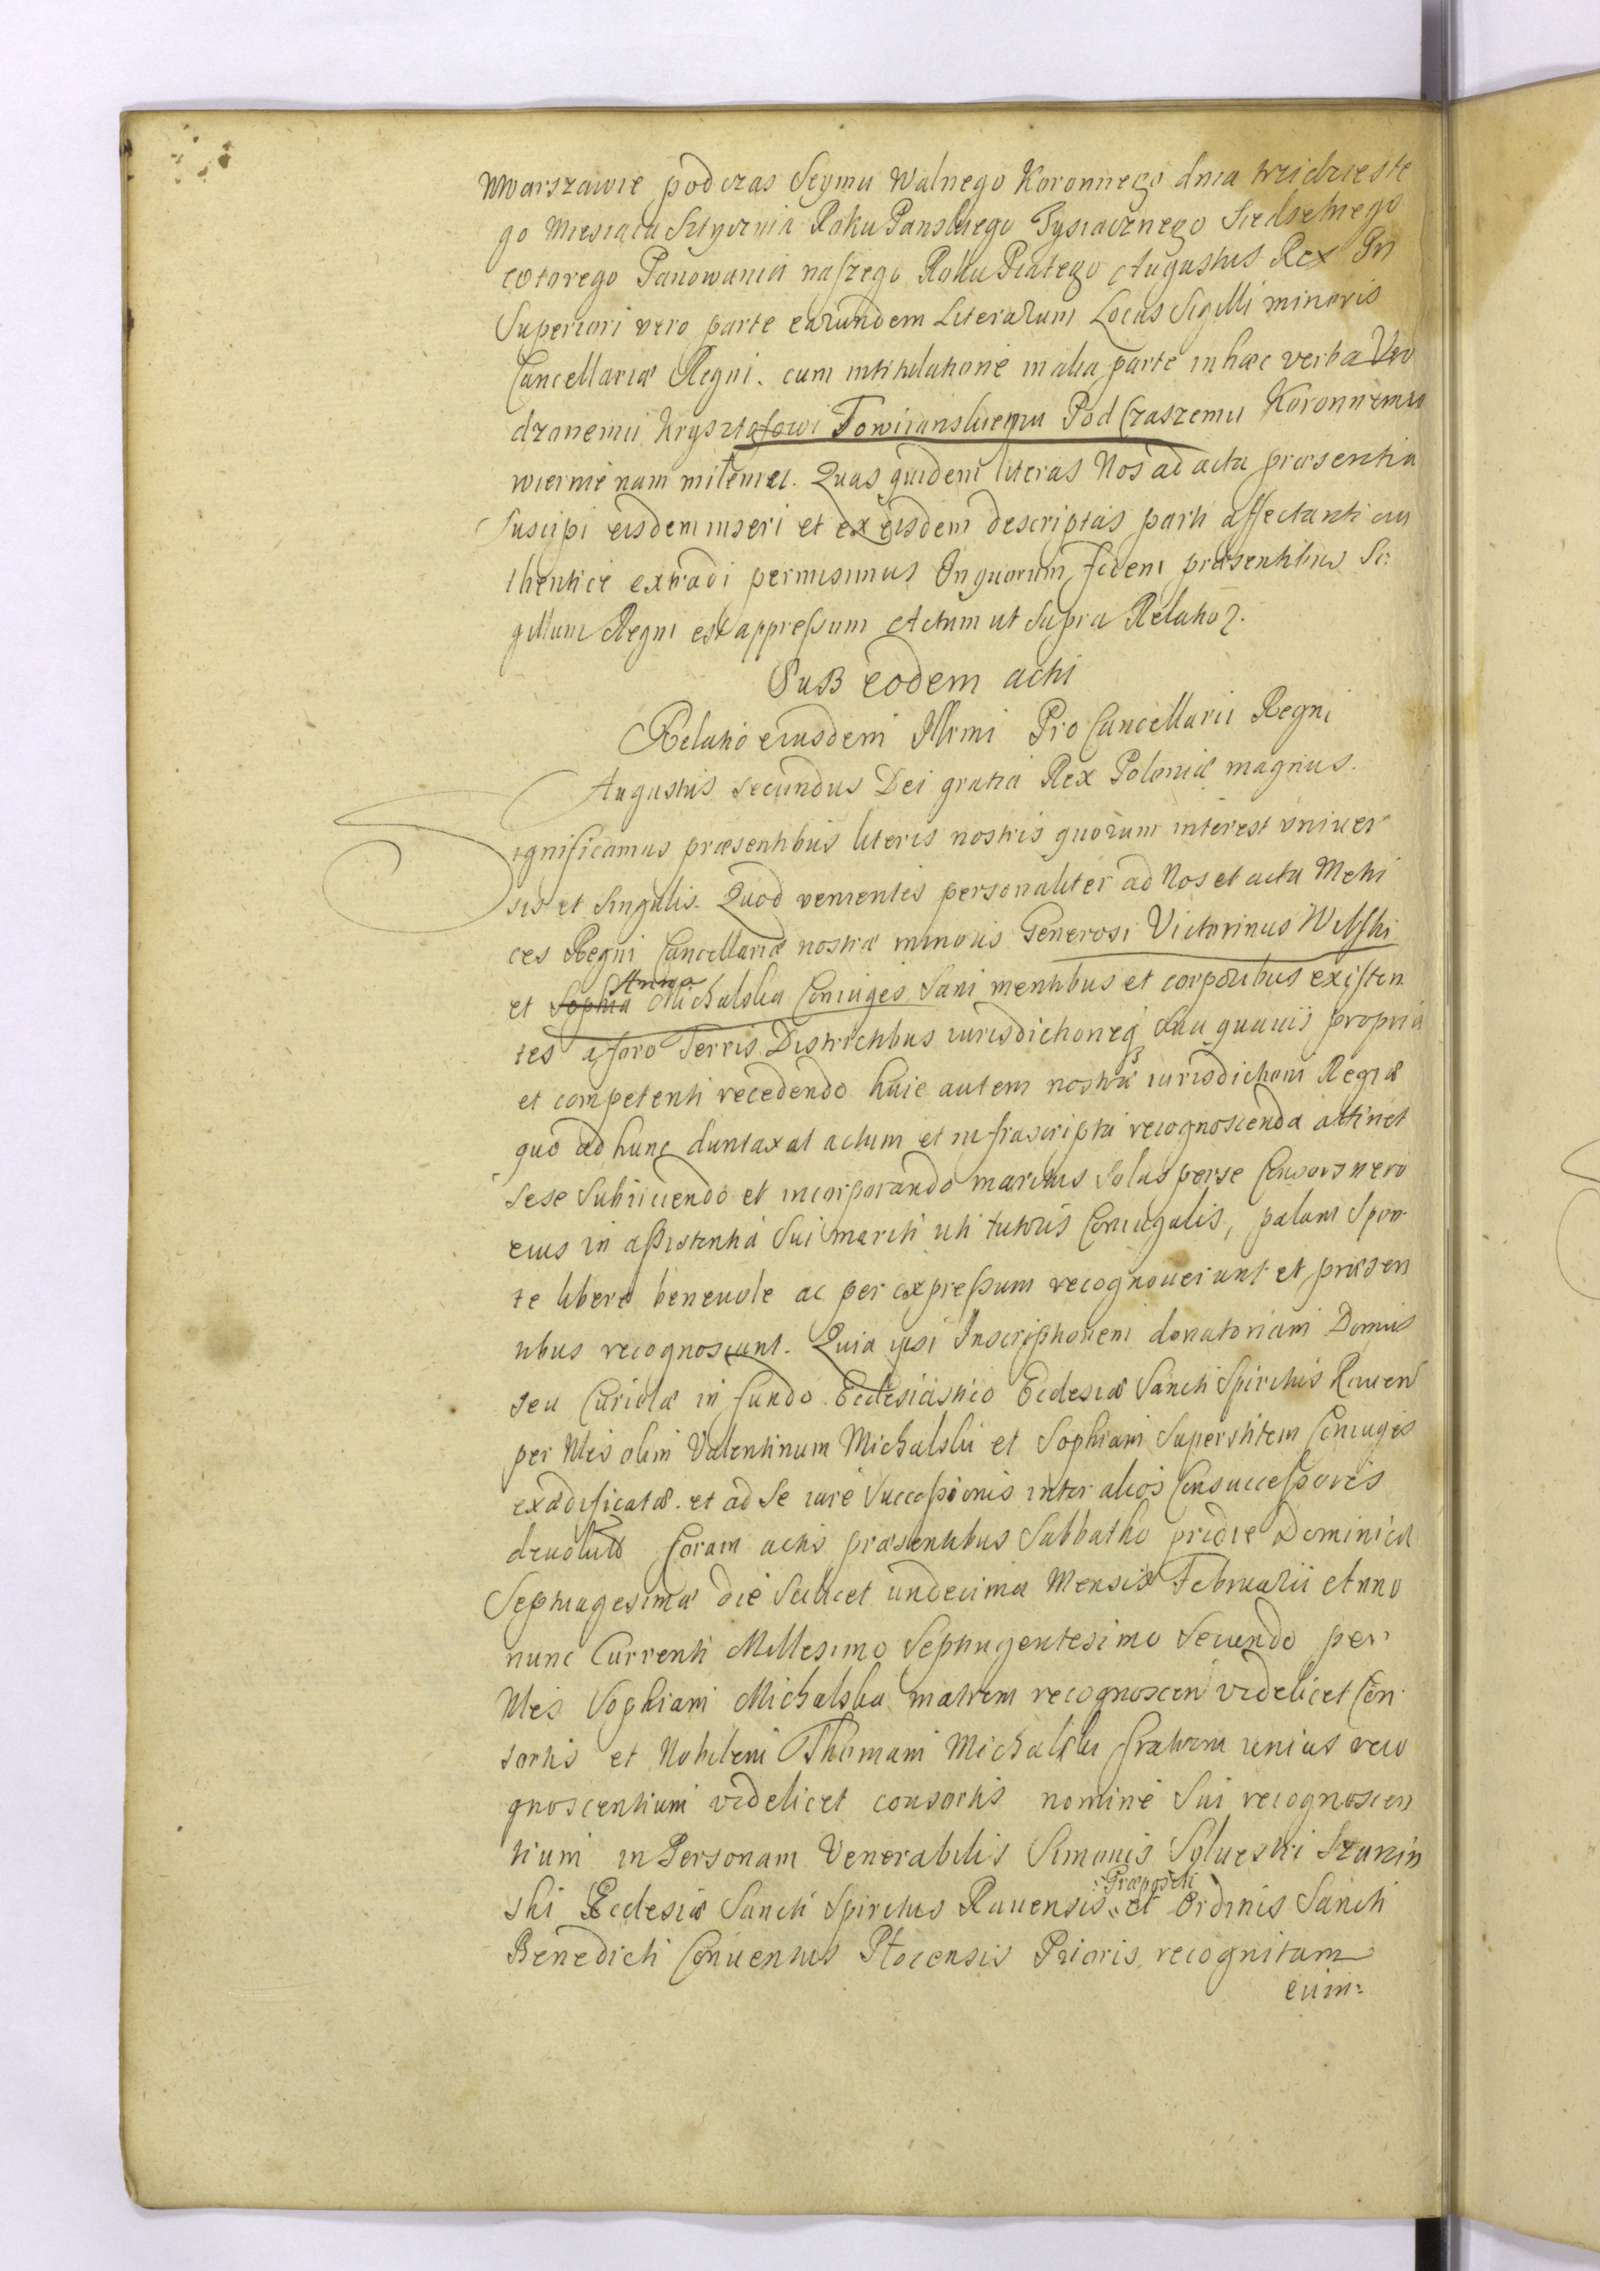 Wwarszawie podczas Seymu Walnego Koronnego dnia trzidzieste
go Miesiąca Stycznia Roku Panskiego Tysiącznego Siedsetnego
wtorego Panowania naszego Roku Piątego Augustus Rex In
Superiori vero parte earundem Literarum Locus Sigilli minoris
Cancellariæ Regni. cum intitulatione in alia parte in hæc verba Uro
dzonemu Krysztofowi Towianskiemu Pod Czaszemu Koronnemu
wiernie nam miłemu. Quas quidem literas Nos ad acta præsentia
Suscipi eisdem inseri et ex eisdem descriptas parti affectanti au
thentice extradi permisimus In quorum fidem præsentibus Si:
gillum Regni est appressum Actum ut Supra Relatio
Sub eodem acti
Relatio eiusdem Illrmi Pro Cancellarii Regni
Augustus secundus Dei gratia Rex Poloniæ magnus.
Significamus præsentibus literis nostris quorum interest univer
sis et singulis. Quod venientes personaliter ad Nos et acta Metri
ces Regni Cancellariæ nostræ minoris Generosi Victorinus Wilski
Anna
et Sophia Michalska Coniuges Sani mentibus et corporibus existen
tes a foro Terris Districtibus iurisdictioneq sua quavis propria
et competenti recedendo huic autem nostræ iurisdictioni Regiæ
quo ad hunc duntaxat actum et infrascripta recognoscenda attinet
sese Subiiciendo et incorporando maritus Solus perse Consors vero
eius in assistentia Sui mariti uti tutoris Coniugalis, palam Spon
te libere benevole ac per expressum recognoverunt et præsen
tibus recognoscunt. Quia ipsi Inscriptionem donatoriam Domus
seu Curiolæ in fundo Ecclesiastico Ecclesiæ Sancti Spiritus Raven
per Nles olim Valentinum Michalski et Sophiam Superstitem Coniuges
exædificatæ. et ad Se iure Successionis inter alios Consuccessores
devolutæ Coram actis præsentibus Sabbatho pridie Dominica
Septuagesimæ die Scilicet undecima Mensis Februarii Anno
nunc Currenti Millesimo Septingentesimo Secundo per
Nles Sophiam Michalska matrem recognoscen videlicet Con
sortis et Nobilem Thomam Michalski fratrem unius reco
gnoscentium videlicet consortis nomine Sui recognoscen
tium in Personam Venerabilis Simonis Sylvestri
:Præpositi
ski Ecclesiæ Sancti Spiritus Ravensis et Ordinis Sancti
Benedicti Conventus Plocensis Prioris recognitam
cuim: